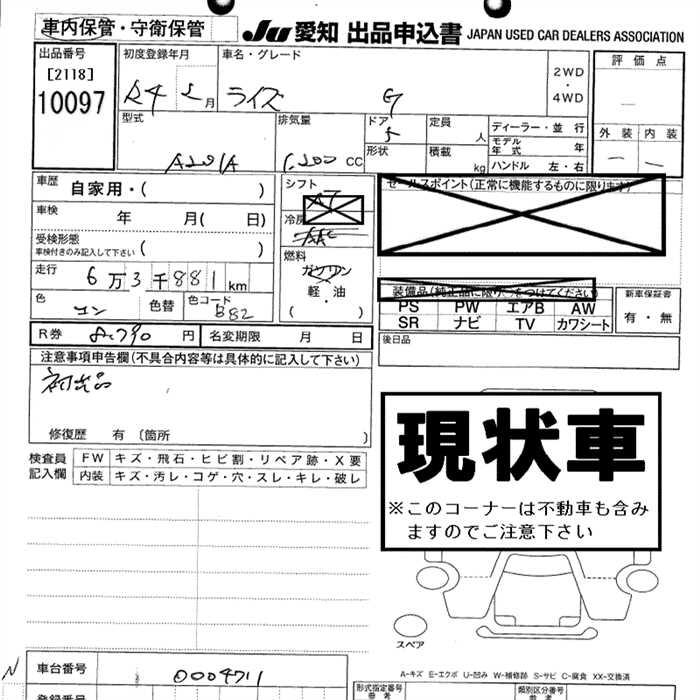 車内保管・守衛保管 JU 愛知 出品申込書 JAPAN USED CAR DEALERS ASSOCIATION
出品番号 初度登録年月 車名・グレード 2WD・4WD 評価点
[2118]
10097 R4 5月 ライズ G
外装 内装
型式 排気量 ドア 定員 人 ディーラー・並行
A201A 1,200 CC 5 モデル年式 年
形状 積載 kg ハンドル 左・右
車歴 自家用・( ) シフト AT セールスポイント(正常に機能するものに限ります)
車検 年 月( 日) 冷房 AAC
受検形態 ( )
車検付きのみ記入して下さい
燃料
ガソリン
軽・油
( )
走行 6万3千881km
装備品(純正品に限り○をつけてください) 新車保証書
色 コン 色替 色コード B82
PS PW エアB AW 有・無
SR ナビ TV カワシート
R券 8,790円 名変期限 月 日 後日品
注意事項申告欄(不具合内容等は具体的に記入して下さい)
初出品
修復歴 有 〔箇所 〕
現状車
※このコーナーは不動車も含み
ますのでご注意下さい
検査員記入欄 FW キズ・飛石・ヒビ割・リペア跡・X要
内装 キズ・汚レ・コゲ・穴・スレ・キレ・破レ
スペア
A-キズ E-エクボ U-凹み W-補修跡 S-サビ C-腐食 XX-交換済
N 車台番号 0004711
登録番号 形式指定番号 参考 類別区分番号 参考